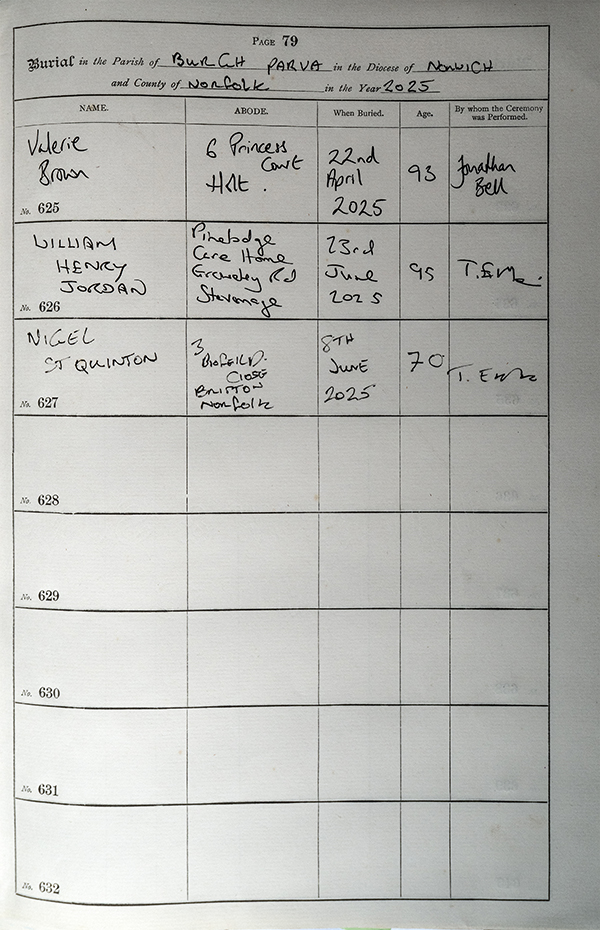 PAGE 79
Burial in the Parish of BURGH PARVA in the Diocese of NORWICH
and County of NORFOLK in the Year 2025
NAME. ABODE. When Buried. Age. By whom the Ceremony was Performed.
Valerie
Brown
No. 625
6 Princess
Court
Holt.
22nd
April
2025
93
Jonathan
Bell
WILLIAM
HENRY
JORDAN
No. 626
Pinelodge
Care Home
Rd
Stevenage
23rd
June
2025
95
NIGEL
ST QUINTON
No. 627
3
Close
BRISTON
NORFOLK
8TH
JUNE
2025
70
No. 628
No. 629
No. 630
No. 631
No. 632